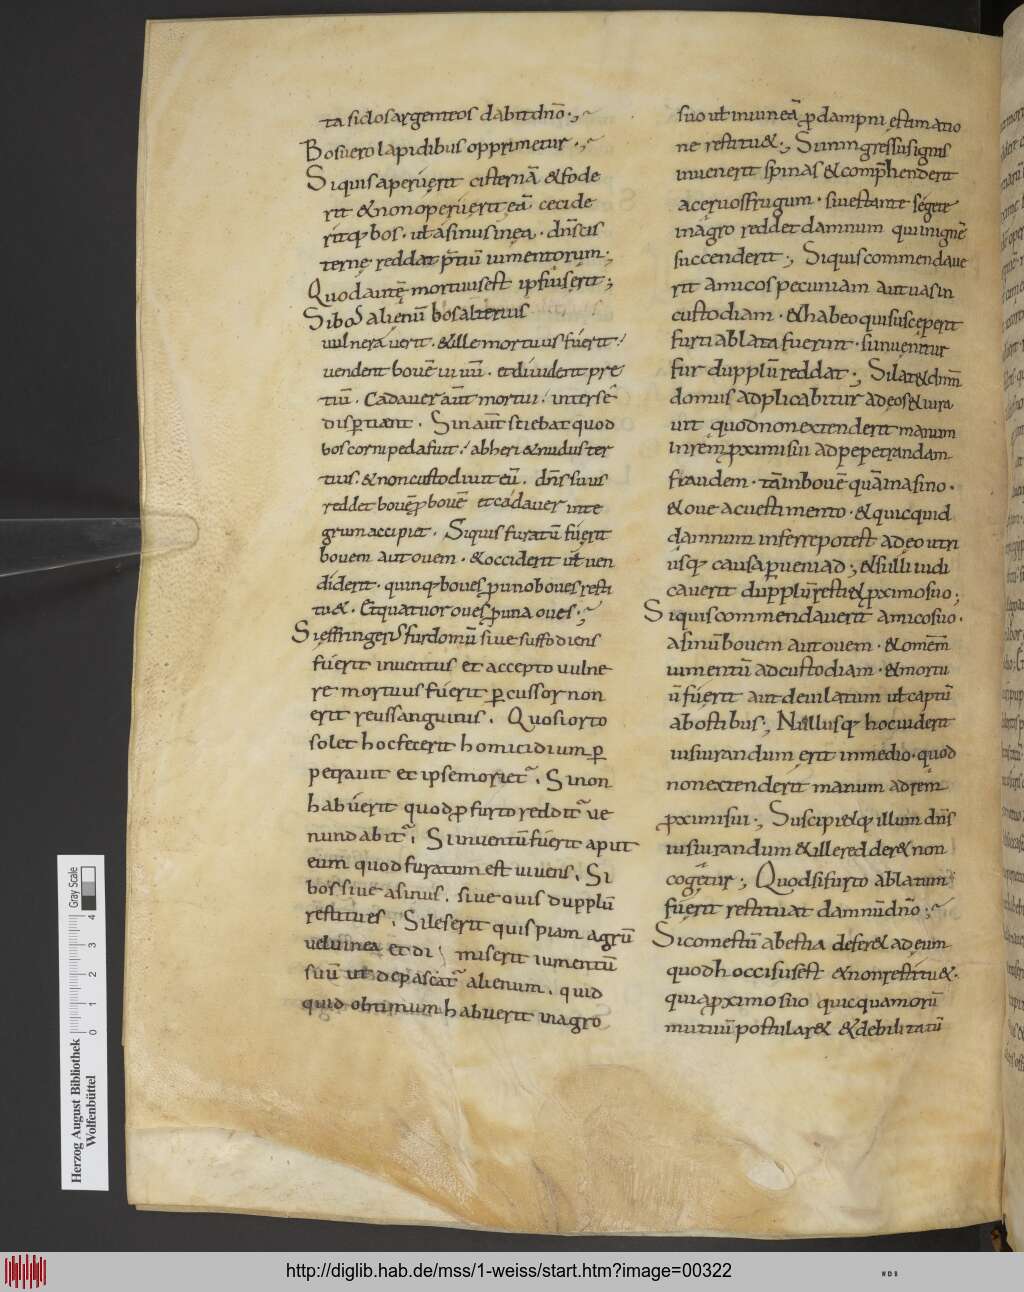 ta siclos argenteos dabit dnō.,
Bos uero lapidibus opprimetur.,
Si quis aperuerit cisternā & fode
rit & non operuerit eā. cecide
ritq; bos. ut asinus in ea. dn̄s cis
ternę reddat p̄tiū iumentorum;
Quod autē mortuus est ipsius erit;
Si bos alienū bos alterius
uulnerauerit. & ille mortuus fuerit
uendent bouē uiuū. et diuident pre
tiū. Cadauer aūt mortui. inter sē
disꝑtiant. Sin aūt sciebat quod
bos cornipeda fuit. ab heri & nudus ter
tius. & non custodiuit eū. dn̄s suus
reddet bouē ꝓ bouē et cadauer inte
grum accipiet. Si quis furatū fuerit
bouem aut ouem. & occiderit ut uen
diderit. quinq; boues ꝓ uno boues resti
tu&. Et quatuor oues ꝓ una oues.;
Si effringens fur domū siue suffodiens
fuerit inuentus et accepto uulne
re mortuus fuerit ꝑcussor non
erit reus sanguinis. Quosi orto
sole hoc fecerit homicidium ꝑ
petrauit et ipse moriet~. Si non
habuerit quod ꝓ furto reddit~ ue
nundabit~. Si inuentū fuerit aput
eum quod furatum est uiuens. Si
bos siue asinus. siue ouis dupplū
restitues. Si leserit quispiam agrū
uel uinea et di miserit iumentū
suū ut depascat~ alienum. quid
quid obtimum habuerit in agro
suo ut in uineā ꝓ dampni estimatio
ne restitu&., Si ningressus ignis
inuenerit spinas & comp̄henderit
aceruos frugum. siue stante segete
in agro reddet damnum qui ignē
succenderit., Si quis commendaue
rit amico s pecuniam aut uas in
custodiam. & hab eo qui susceperit
furti ablata fuerint. si inuenitur
fur dupplū reddat., Si lat& dn̄m
domus adplicabitur ad eos & iura
uit quod non extenderit manum
in rem ꝓximi sui ad pepetrandam
fraudem. tam in bouē quā in asino.
& oue ac uestimento. & quicquid
damnum inferre potest ad eo utri
usq; causa ꝑueni ad., & si illi iudi
cauerit dupplū resti& ꝓximo suo;
Si quis commendauerit amico suo.
asinū bouem aut ouem. & omēm
iumentū ad custodiam. & mortu
ū fuerit aut deuilatum ut captū
ab ostibus., Nullusq; hoc uiderit
iusiurandum erit in medio. quod
non extenderit manum ad rem
ꝓximi sui., Suscipi&q; illum dn̄s
iusiurandum & ille redder& non
cogetur., Quod si furto ablatum
fuerit restituat damnū dn̄o.;
Si comestū a bestia defer& ad eum
quod hoccisus est & non restitu&.
qui a ꝓximo suo quicquam orū
mutuū postular& & debilitatū